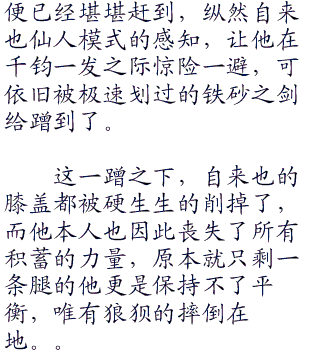 便已经堪堪赶到，纵然自来
也仙人模式的感知，让他在
千钧一发之际惊险一避，可
依旧被极速划过的铁砂之剑
给蹭到了。
这一蹭之下，自来也的
膝盖都被硬生生的削掉了，
而他本人也因此丧失了所有
积蓄的力量，原本就只剩一
条腿的他更是保持不了平
衡，唯有狼狈的摔倒在
地。。